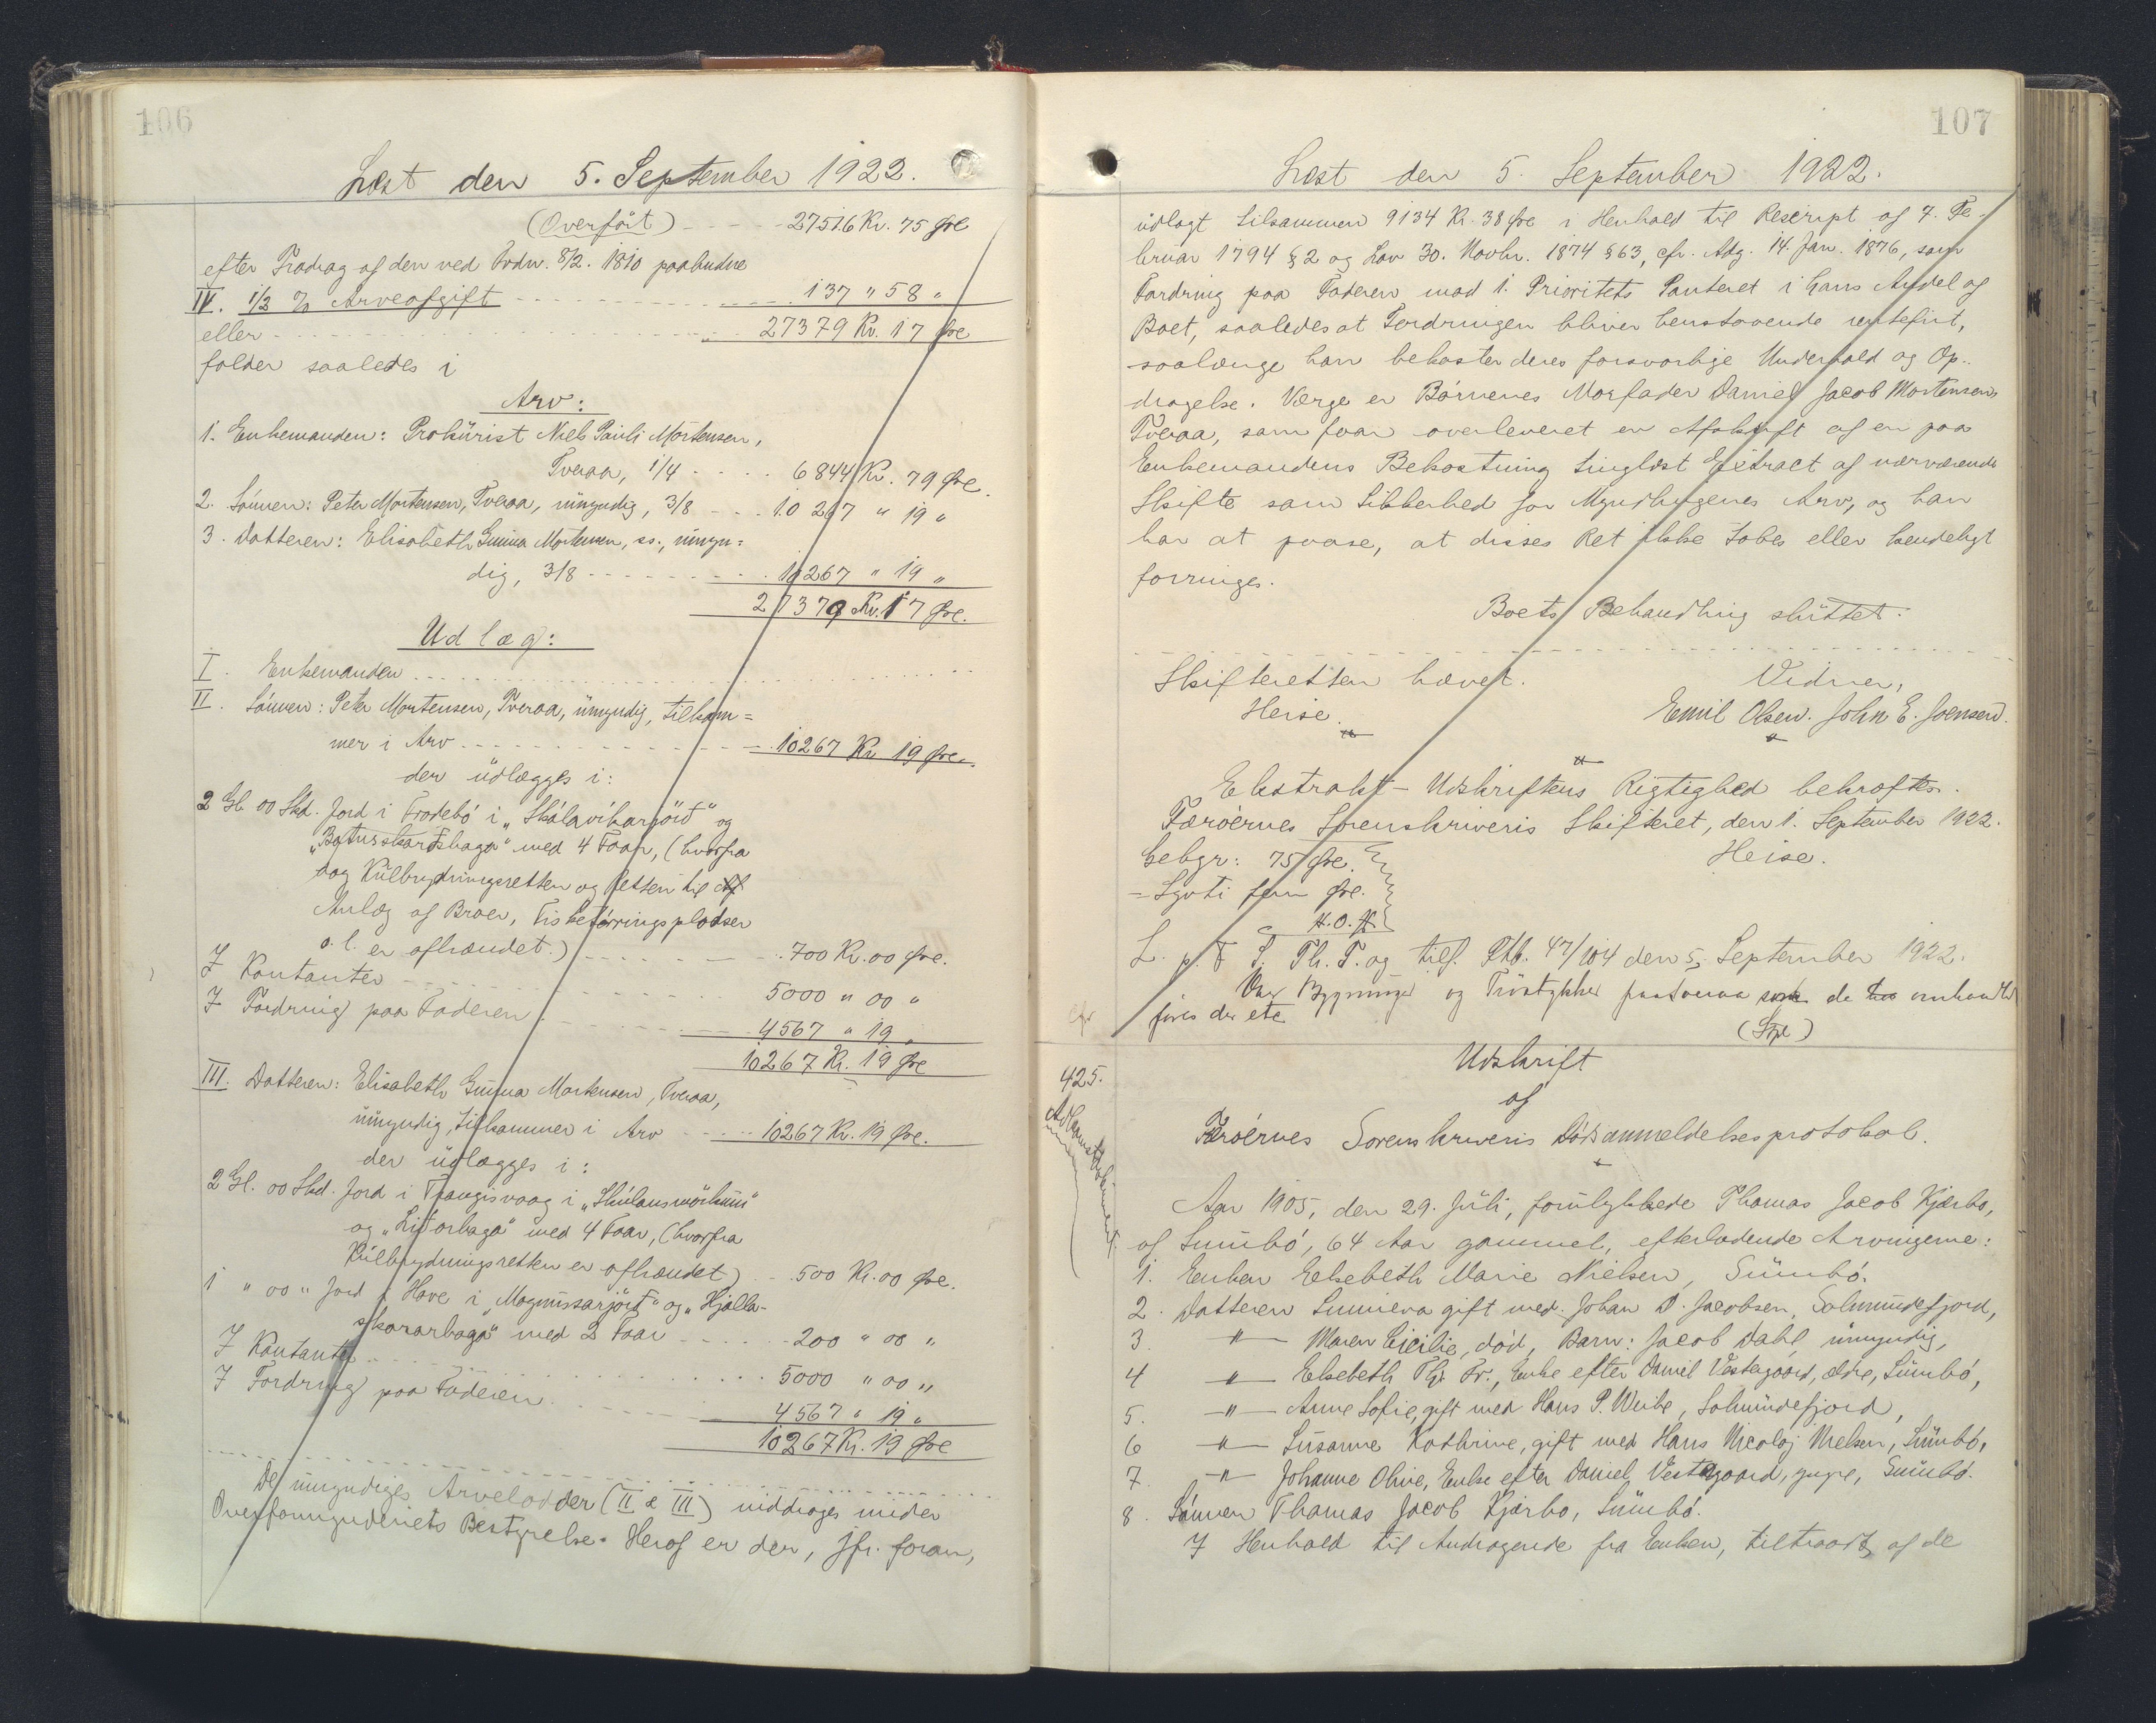 106
Læst den 5. September 1922.
(Overført) 27516 Kr. 75 Øre
efter Fradrag af den ved Frdn. 8/2. 1810 paabudne
IV. 1/2 % Arveafgift 137 " 58 "
eller 27379 Kr. 17 Øre
falder saaledes i
Arv:
1. Enkemanden: Prokúrist Niels Paúli Mortensen,
Tveraa, 1/4 6844 Kr. 79 Øre.
2. Sønnen: Peter Mortensen, Tveraa, úmyndig, 3/8 10267 " 19 "
3. Datteren: Elisabeth Gunna Mortensen, ss., úmyn=
dig, 3/8 10267 " 19 "
27379 Kr. 17 Øre.
Udlæg:
I. Enkemanden
II. Sønnen: Peter Mortensen, Tveraa, úmyndig, tilkom=
mer i Arv 10267 Kr. 19 Øre.
der údlægges i:
2 Gl. 00 Skd. Jord i Frodebø i "Skálavikarjörd" og
"Botnsskardshaga" med 4 Faar, (hvorfra
dog Kúlbrydningsretten og Retten til
Anlæg af Broer, Fisketørringspladser
o.l. er afhændet.) 700 Kr. 00 Øre.
I Kontanter 5000 " 00 "
I Fordring paa Faderen 4567 " 19 "
10267 Kr. 19 Øre
III. Datteren: Elisabeth Gunna Mortensen, Tveraa,
úmyndig, tilkommer i Arv 10267 Kr. 19 Øre.
der údlægges i:
2 Gl. 00 Skd. Jord i Trangisvaag i
og "Litlorhaga" med 4 Faar, (hvorfra
Kúlbrydningsretten er afhændet) 500 Kr. 00 Øre.
1 " 00 " Jord i Hove i "Magnússarjörd" og "Hjalla-
skorarhaga" med 2 Faar 200 " 00 "
I Kontanter 5000 " 00 "
I Fordring paa Faderen 4567 " 19 "
10267 Kr. 19 Øre
De úmyndiges Arvelodder (II & III) inddrages únder
Overformynderiets Bestyrelse. Heraf er der, jfr. foran,
107
Læst den 5. September 1922.
údlagt tilsammen 9134 Kr. 38 Øre i Henhold til Reskript af 7. Fe-
brúar 1794 § 2 og Lov 30. Novbr. 1874 § 63, cfr. Adg. 14. Jan. 1876, som
Fordring paa Faderen mod 1. Prioritets Panteret i hans Andel af
Boet, saaledes at Fordringen bliver henstaaende rentefrit,
saalænge han bekoster deres forsvarlige Underhold og Op-
dragelse. Værge er Børnenes Morfader Daniel Jacob Mortensen,
Tveraa, som faar overleveret en Afskrift af en paa
Enkemandens Bekostning tinglæst Extract af nærværende
Skifte som Sikkerhed for Myndlingenes Arv, og han
har at paase, at disses Ret ikke tabes eller kendeligt
forringes.
Boets Behandling slúttet.
Skifteretten hævet. Vidner,
Heise. Emil Olsen. John E. Joensen.
Ekstrakt-Udskriftens Rigtighed bekræftes.
Færøernes Sorenskriveris Skifteret, den 1. September 1922.
Gebyr: 75 Øre. Heise.
= Syvti fem Øre.
H.O.H.
L. p. F. S. Th. T. og tilf. Ptb. 47/104 den 5. September 1922.
Bygninger og de
føres der etc
cfr
425.
Udskrift
af
Færøernes Sorenskriveris Dødsanmeldelsesprotokol.
Aar 1905, den 29. Júli, forúlykkede Thomas Jacob Kjærbo,
af Súmbø, 64 Aar gammel, efterladende Arvingerne:
1. Enken Elsebeth Marie Nielsen, Súmbø.
2. Datteren Sunneva gift med Johan D. Jacobsen, Solmúndefjord,
3. " Maren Cicilie, død, Barn: Jacob Dahl, úmyndig,
4 " Elsebeth Enke efter Daniel Vestergaard, ældre, Súmbø,
5. " Anne Sofie, gift med Hans P. Weihe, Solmúndefjord,
6 " Súsanne Kathrine, gift med Hans Nicolaj Nielsen, Súmbø,
7. " Johanne Olive, Enke efter Daniel Vestergaard, yngre, Súmbø.
8. Sønnen Thomas Jacob Kjærbo, Súmbø.
I Henhold til Andragende fra Enken, tiltraadt af de